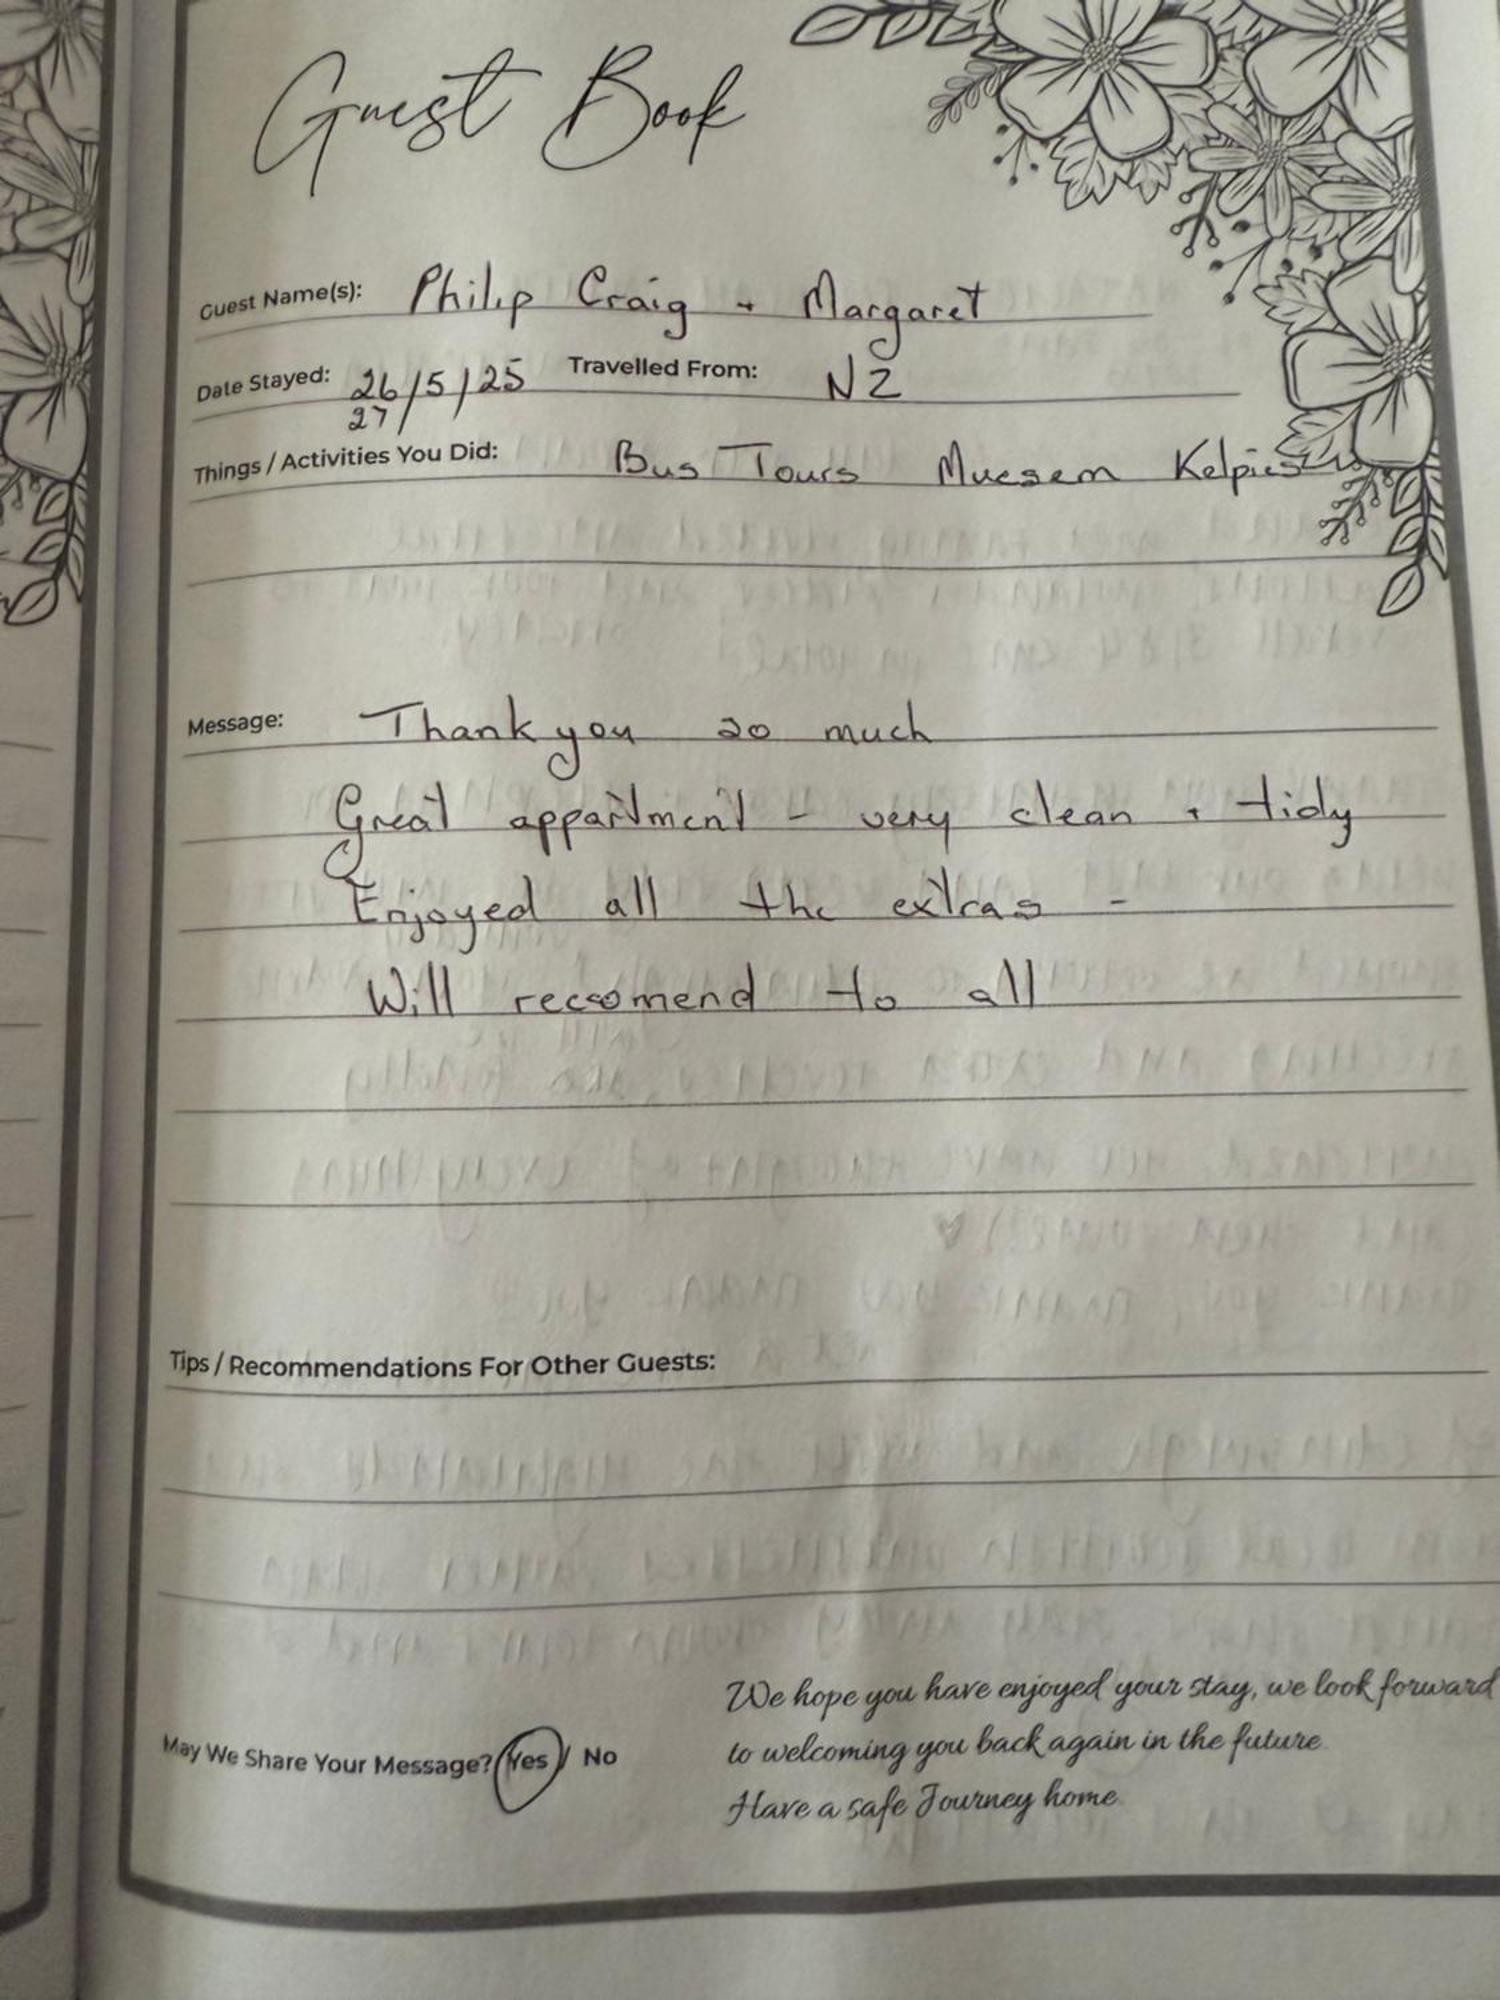 Guest Book
Guest Name(s): Philip Craig + Margaret
Date Stayed: 26/5/25 Travelled From: NZ
27/
Things / Activities You Did: Bus Tours Muesem Kelpies
Message: Thank you so much
Great appartment - very clean + tidy
Enjoyed all the extras -
Will reccomend to all
Tips / Recommendations For Other Guests:
We hope you have enjoyed your stay, we look forward
May We Share Your Message? Yes / No
to welcoming you back again in the future.
Have a safe Journey home.